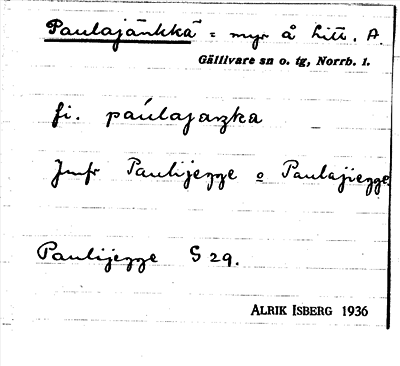 Paulajänkkä = myr å litt. A.
Gällivare sn o. tg, Norrb. l.
fi. paulajaŋka
Jmfr Paulijegge o Paulajiegge.
Paulijegge S 29.
ALRIK ISBERG 1936